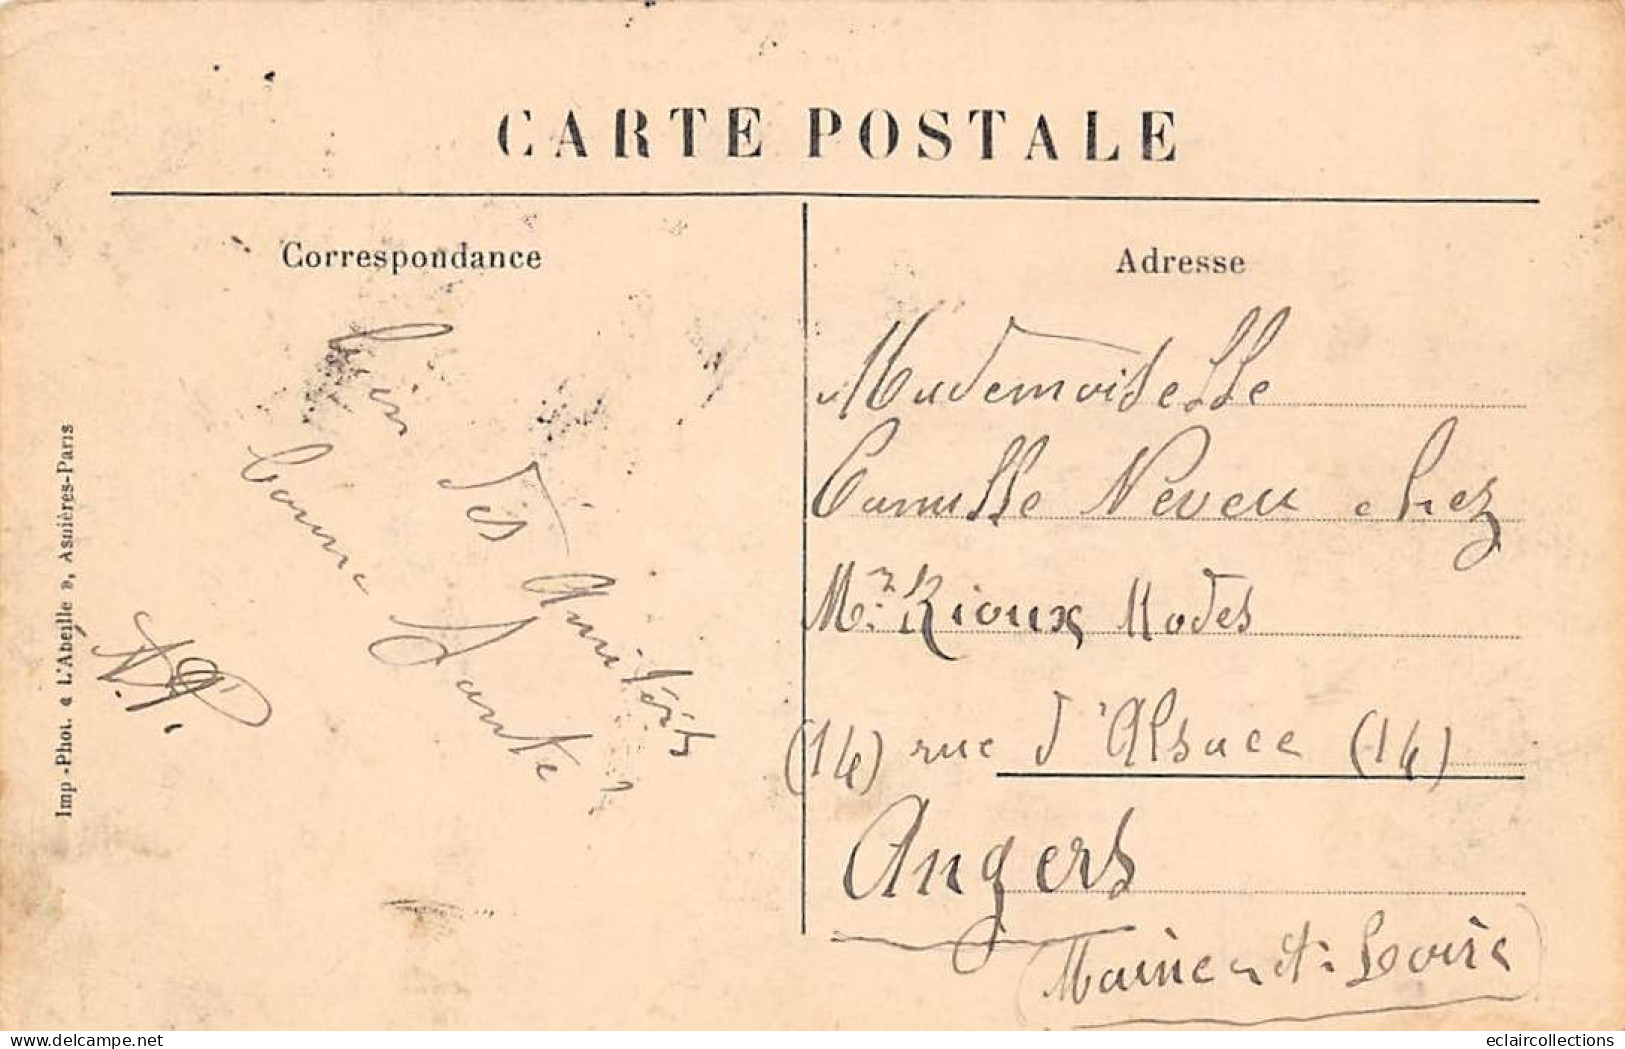 CARTE POSTALE
Correspondance
Adresse
Bien des Amitiés
bonne Santé
Mademoiselle
Camille Neveu chez
Mr Rioux Modes
(14) rue d'Alsace (14)
Angers
(Maine-et-Loire)
Imp -Phot. « L'Abeille », Asnières-Paris
eclaircollections